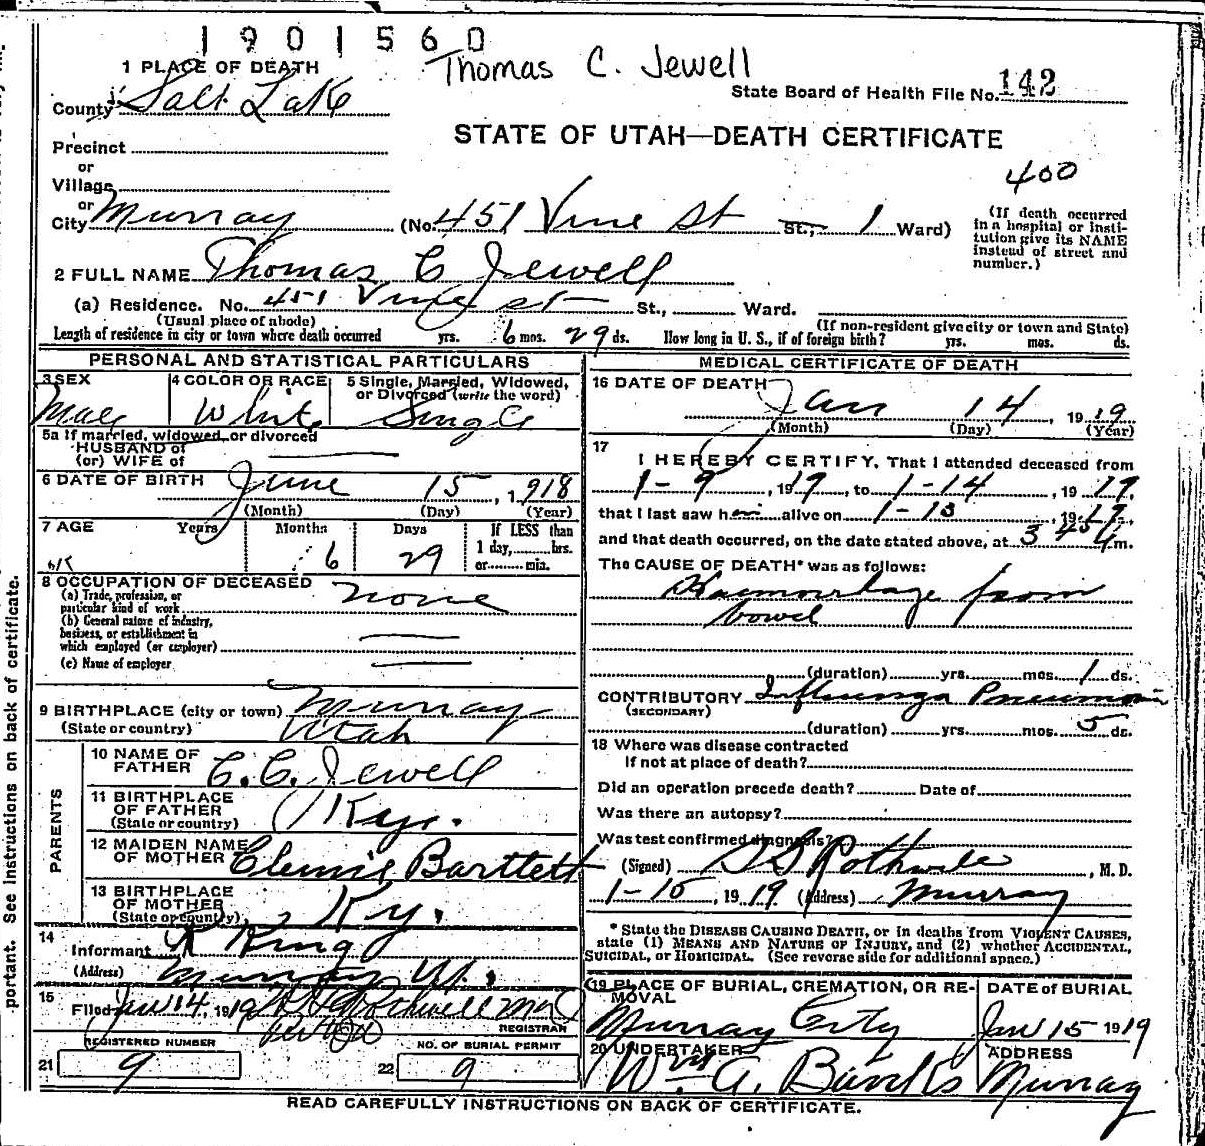 1901560
Thomas C. Jewell
1 PLACE OF DEATH
State Board of Health File No. 142
County Salt Lake
STATE OF UTAH—DEATH CERTIFICATE
Precinct
or
Village
400
or
City Murray (No. 451 Vine St St., 1 Ward)
(If death occurred in a hospital or institution give its NAME instead of street and number.)
2 FULL NAME Thomas C Jewell
(a) Residence. No. 451 Vine st St., Ward.
(Usual place of abode) (If non-resident give city or town and State)
Length of residence in city or town where death occurred yrs. 6 mos. 29 ds. How long in U. S., if of foreign birth? yrs. mos. ds.
PERSONAL AND STATISTICAL PARTICULARS
3 SEX Male
4 COLOR OR RACE White
5 Single, Married, Widowed, or Divorced (write the word) Single
5a If married, widowed, or divorced
HUSBAND of
(or) WIFE of
6 DATE OF BIRTH June 15, 1918
(Month) (Day) (Year)
7 AGE Years Months Days If LESS than
6 29 1 day, hrs.
or min.
8 OCCUPATION OF DECEASED
(a) Trade, profession, or
particular kind of work none
(b) General nature of industry,
business, or establishment in
which employed (or employer)
(c) Name of employer
9 BIRTHPLACE (city or town) Murray
(State or country) Utah
PARENTS
10 NAME OF FATHER C. C. Jewell
11 BIRTHPLACE OF FATHER
(State or country) Ky.
12 MAIDEN NAME OF MOTHER Clemie Bartlett
13 BIRTHPLACE OF MOTHER
(State or country) Ky.
14 Informant R King
(Address) Murray Ut.
15 Filed Jan 14, 1919 Rothwell MD
REGISTRAR
REGISTERED NUMBER
21 9
NO. OF BURIAL PERMIT
22 9
MEDICAL CERTIFICATE OF DEATH
16 DATE OF DEATH
Jan 14, 1919
(Month) (Day) (Year)
17 I HEREBY CERTIFY, That I attended deceased from
1-9, 1919, to 1-14, 1919,
that I last saw him alive on 1-13, 1919,
and that death occurred, on the date stated above, at 3 45 m.
The CAUSE OF DEATH* was as follows:
Haemorrhage from
bowel
(duration) yrs. mos. 1 ds.
CONTRIBUTORY Influenza Pneumonia
(SECONDARY)
(duration) yrs. mos. 5 ds.
18 Where was disease contracted
If not at place of death?
Did an operation precede death? Date of
Was there an autopsy?
Was test confirmed diagnosis?
(Signed) Rothwell, M. D.
1-15, 1919 (Address) Murray
* State the DISEASE CAUSING DEATH, or in deaths from VIOLENT CAUSES,
state (1) MEANS AND NATURE OF INJURY, and (2) whether ACCIDENTAL,
SUICIDAL, or HOMICIDAL. (See reverse side for additional space.)
19 PLACE OF BURIAL, CREMATION, OR REMOVAL
Murray City
DATE of BURIAL
Jan 15 1919
20 UNDERTAKER
Wm. A. Banks
ADDRESS
Murray
READ CAREFULLY INSTRUCTIONS ON BACK OF CERTIFICATE.
portant. See instructions on back of certificate.